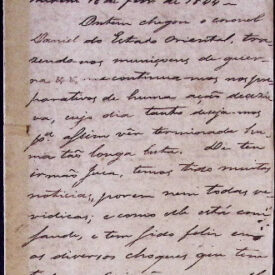 16 de 1894 -
Ontem chegou o coronel
Daniel do Estado Oriental, tra
zendo nos munições de guer
ra continua-mos nos pre
parativos de huma ação decizi
va, cujo dia tanto deseja-mos
pª assim vêr terminada hu
ma tão longa luta. De teu
irmão Juca, temos tido muitas
noticias, porem nem todas ve
ridicas; e como elle está com
, e tem sido feliz em
os diversos choques que tem